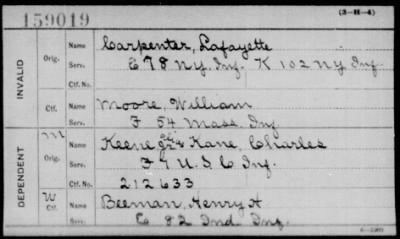 159019
(3-H-4)
INVALID
Orig.
Name Carpenter, Lafayette
Serv. E 78 N.Y. Inf. K 102 N.Y. Inf.
Ctf. No.
Ctf.
Name Moore, William
Serv. F 54 Mass. Inf.
DEPENDENT
M
Orig.
Name Keene or Kane, Charles
Serv. F 7 U.S.C Inf.
Ctf. No. 212633
W
Ctf.
Name Beeman, Henry H
Serv. E 82 Ind. Inf.